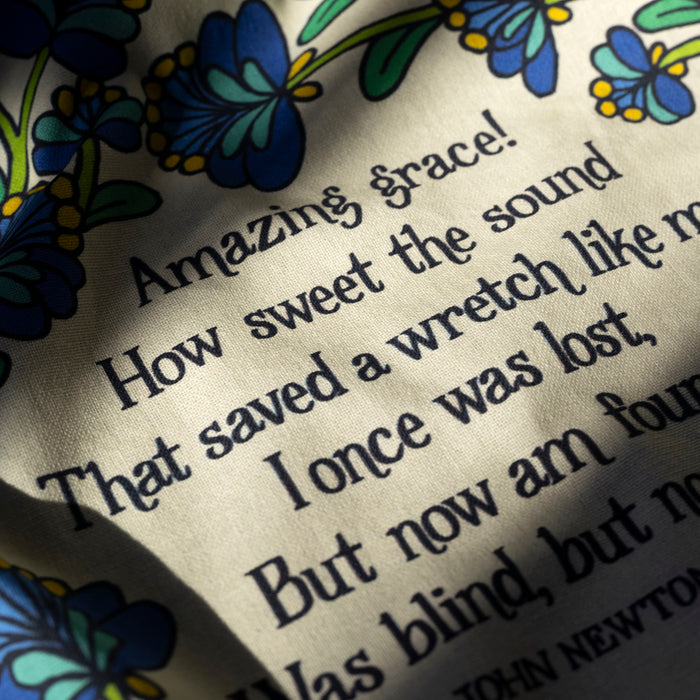 Amazing grace!
How sweet the sound
That saved a wretch like m
I once was lost,
But now am foun
Was blind, but no
JOHN NEWTON